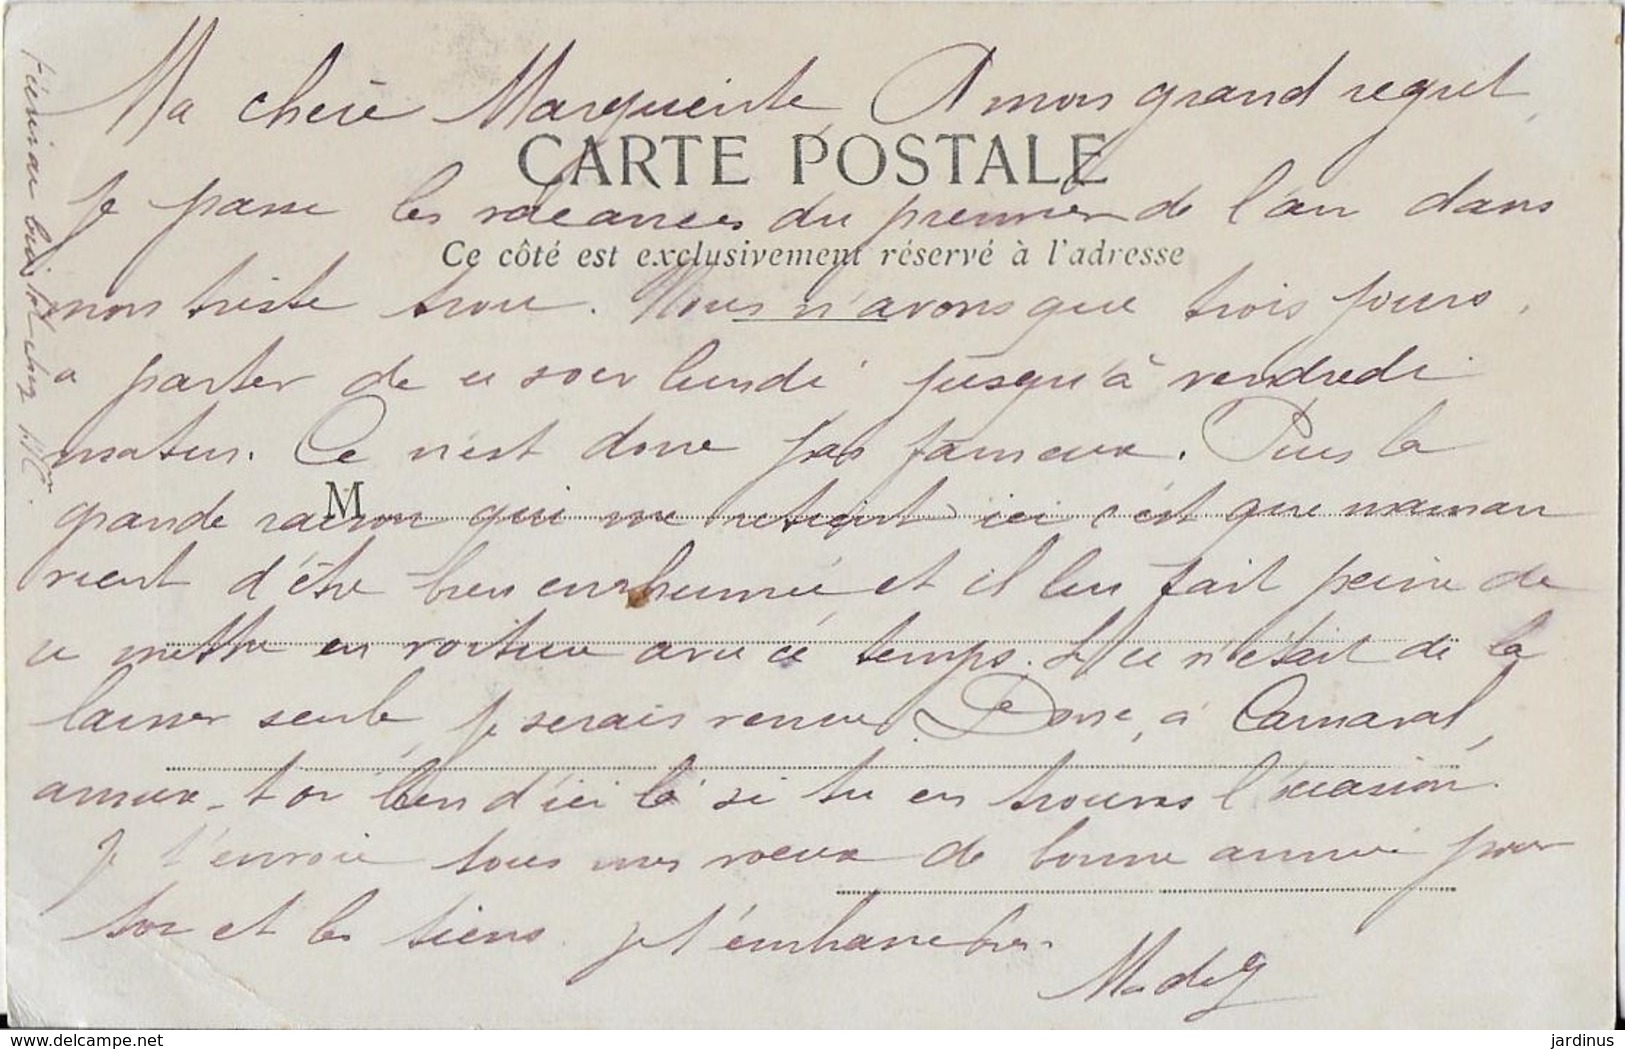 Ma chère Marguerite, A mon grand regret,
CARTE POSTALE
je passe les vacances du premier de l'an dans
Ce côté est exclusivement réservé à l'adresse
mon triste trou. Nous n'avons que trois jours,
a partir de ce soir lundi jusqu'à vendredi
matin. Ce n'est donc pas fameux. Puis la
M
grande raison qui me retient ici c'est que maman
vient d'être bien enrhumée et il lui fait peine de
se mettre en voiture avec ce temps. Si ce n'était de la
laisser seule, je serais venue. Donc, à Carnaval,
amuse-toi bien d'ici là si tu en trouves l'occasion.
Je t'envoie tous mes voeux de bonne année pour
toi et les tiens je t'embrasse bien.
Madeg
chez Mr
www.delcampe.net
jardinus